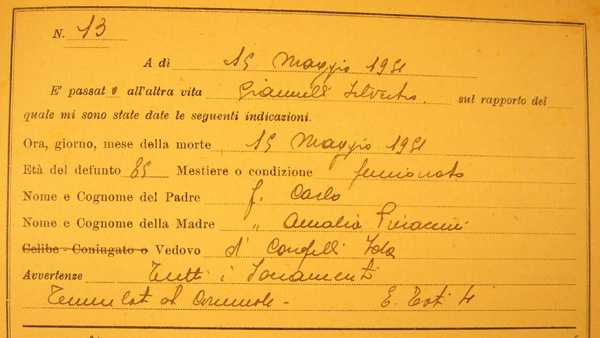 N. 13
A dì 15 Maggio 1951
E' passat o all'altra vita Giannelli Silvestro. sul rapporto del
quale mi sono state date le seguenti indicazioni.
Ora, giorno, mese della morte 15 Maggio 1951
Età del defunto 85 Mestiere o condizione pensionato
Nome e Cognome del Padre f. Carlo
Nome e Cognome della Madre " Amalia
Celibe - Coniugato o Vedovo di Ida
Avvertenze Tutti i Sacramenti
E. Toti 4